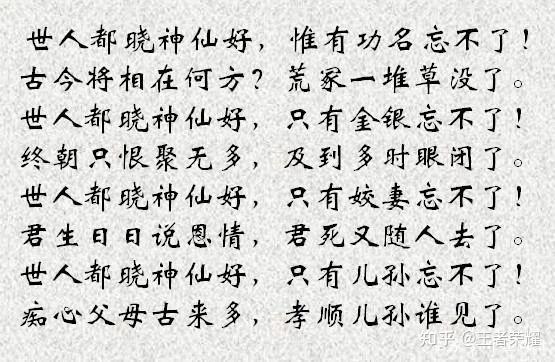 世人都晓神仙好，惟有功名忘不了！
古今将相在何方？荒冢一堆草没了。
世人都晓神仙好，只有金银忘不了！
终朝只恨聚无多，及到多时眼闭了。
世人都晓神仙好，只有姣妻忘不了！
君生日日说恩情，君死又随人去了。
世人都晓神仙好，只有儿孙忘不了！
痴心父母古来多，孝顺儿孙谁见了。
知乎 @王者荣耀